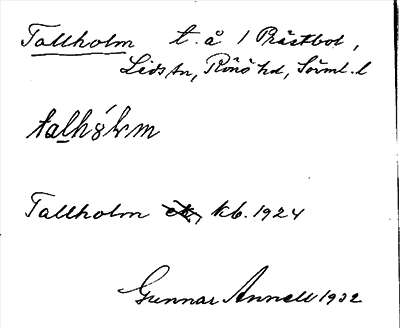 Tallholm t. å 1 Prästbol,
Lids sn, Rönö hd, Sörml. l
talhólm
Tallholm kb. 1924
Gunnar Annell 1932